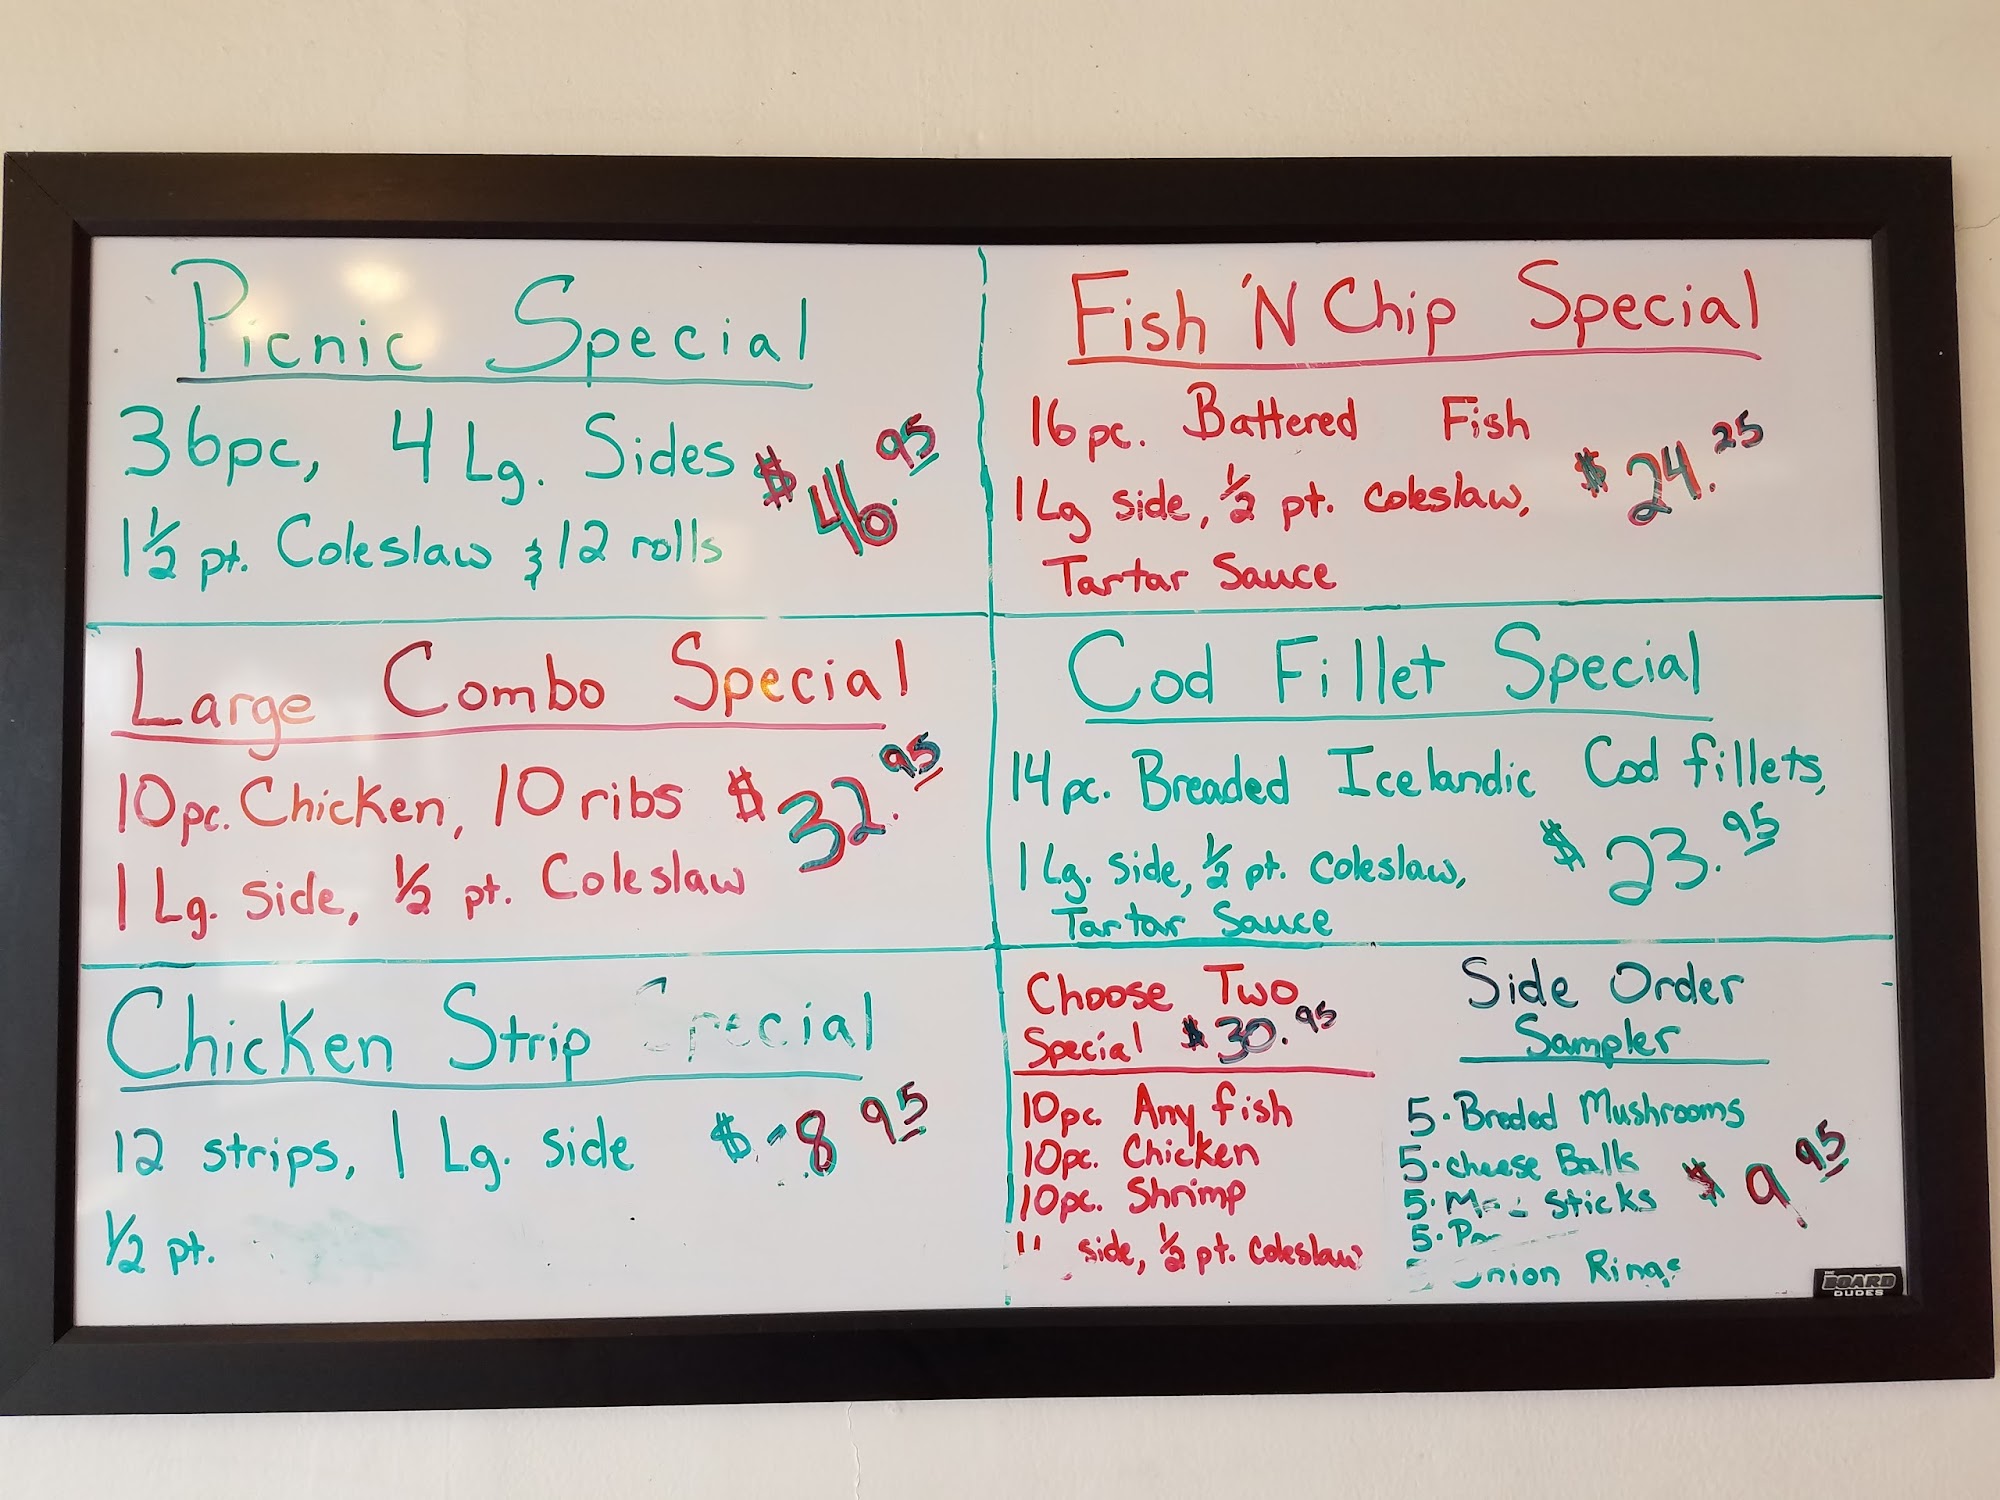 Picnic Special
36pc, 4 Lg. Sides
1 1/2 pt. Coleslaw & 12 rolls
$46.95
Large Combo Special
10pc. Chicken, 10 ribs
1 Lg. side, 1/2 pt. Coleslaw
$32.95
Chicken Strip Special
12 strips, 1 Lg. side
1/2 pt.
$ 8 95
Fish 'N Chip Special
16pc. Battered Fish
1 Lg side, 1/2 pt. coleslaw,
Tartar Sauce
$24.25
Cod Fillet Special
14pc. Breaded Icelandic Cod fillets,
1 Lg. side, 1/2 pt. coleslaw,
Tartar Sauce
$23.95
Choose Two
Special $30.95
10pc. Any fish
10pc. Chicken
10pc. Shrimp
side, 1/2 pt. coleslaw
Side Order
Sampler
5. Breded Mushrooms
5. cheese Balls
5. sticks
5.
Onion Rings
$9 95
THE BOARD DUDES